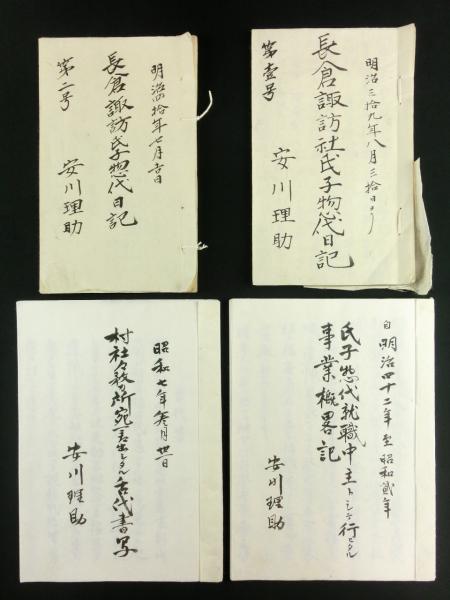 明治三拾九年八月三拾日ヨリ
長倉諏訪社氏子惣代日記
第壹号
安川理助
明治四拾年七月吉日
長倉諏訪氏子惣代日記
第二号
安川理助
自明治四十二年至昭和貳年
氏子惣代就職中主トシテ行ヒタル
事業概畧記
安川理助
昭和七年
村社々務所宛差出シタル古代書写
安川理助